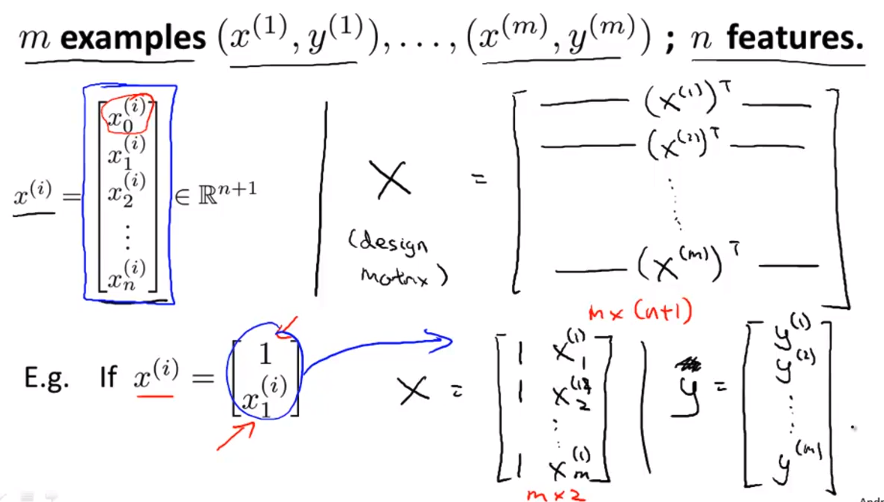 m examples (x^(1), y^(1)), . . . , (x^(m), y^(m)) ; n features.
x^(i) = [x_0^(i) x_1^(i) x_2^(i) ⋮ x_n^(i)] ∈ ℝ^(n+1)
X (design matrix) = [— (x^(1))^T — — (x^(2))^T — ⋮ — (x^(m))^T —]
m × (n+1)
E.g. If x^(i) = [1 x_1^(i)]
X = [1 x_1^(1) 1 x_2^(1) ⋮ 1 x_m^(1)]
m × 2
y = [y^(1) y^(2) ⋮ y^(m)]